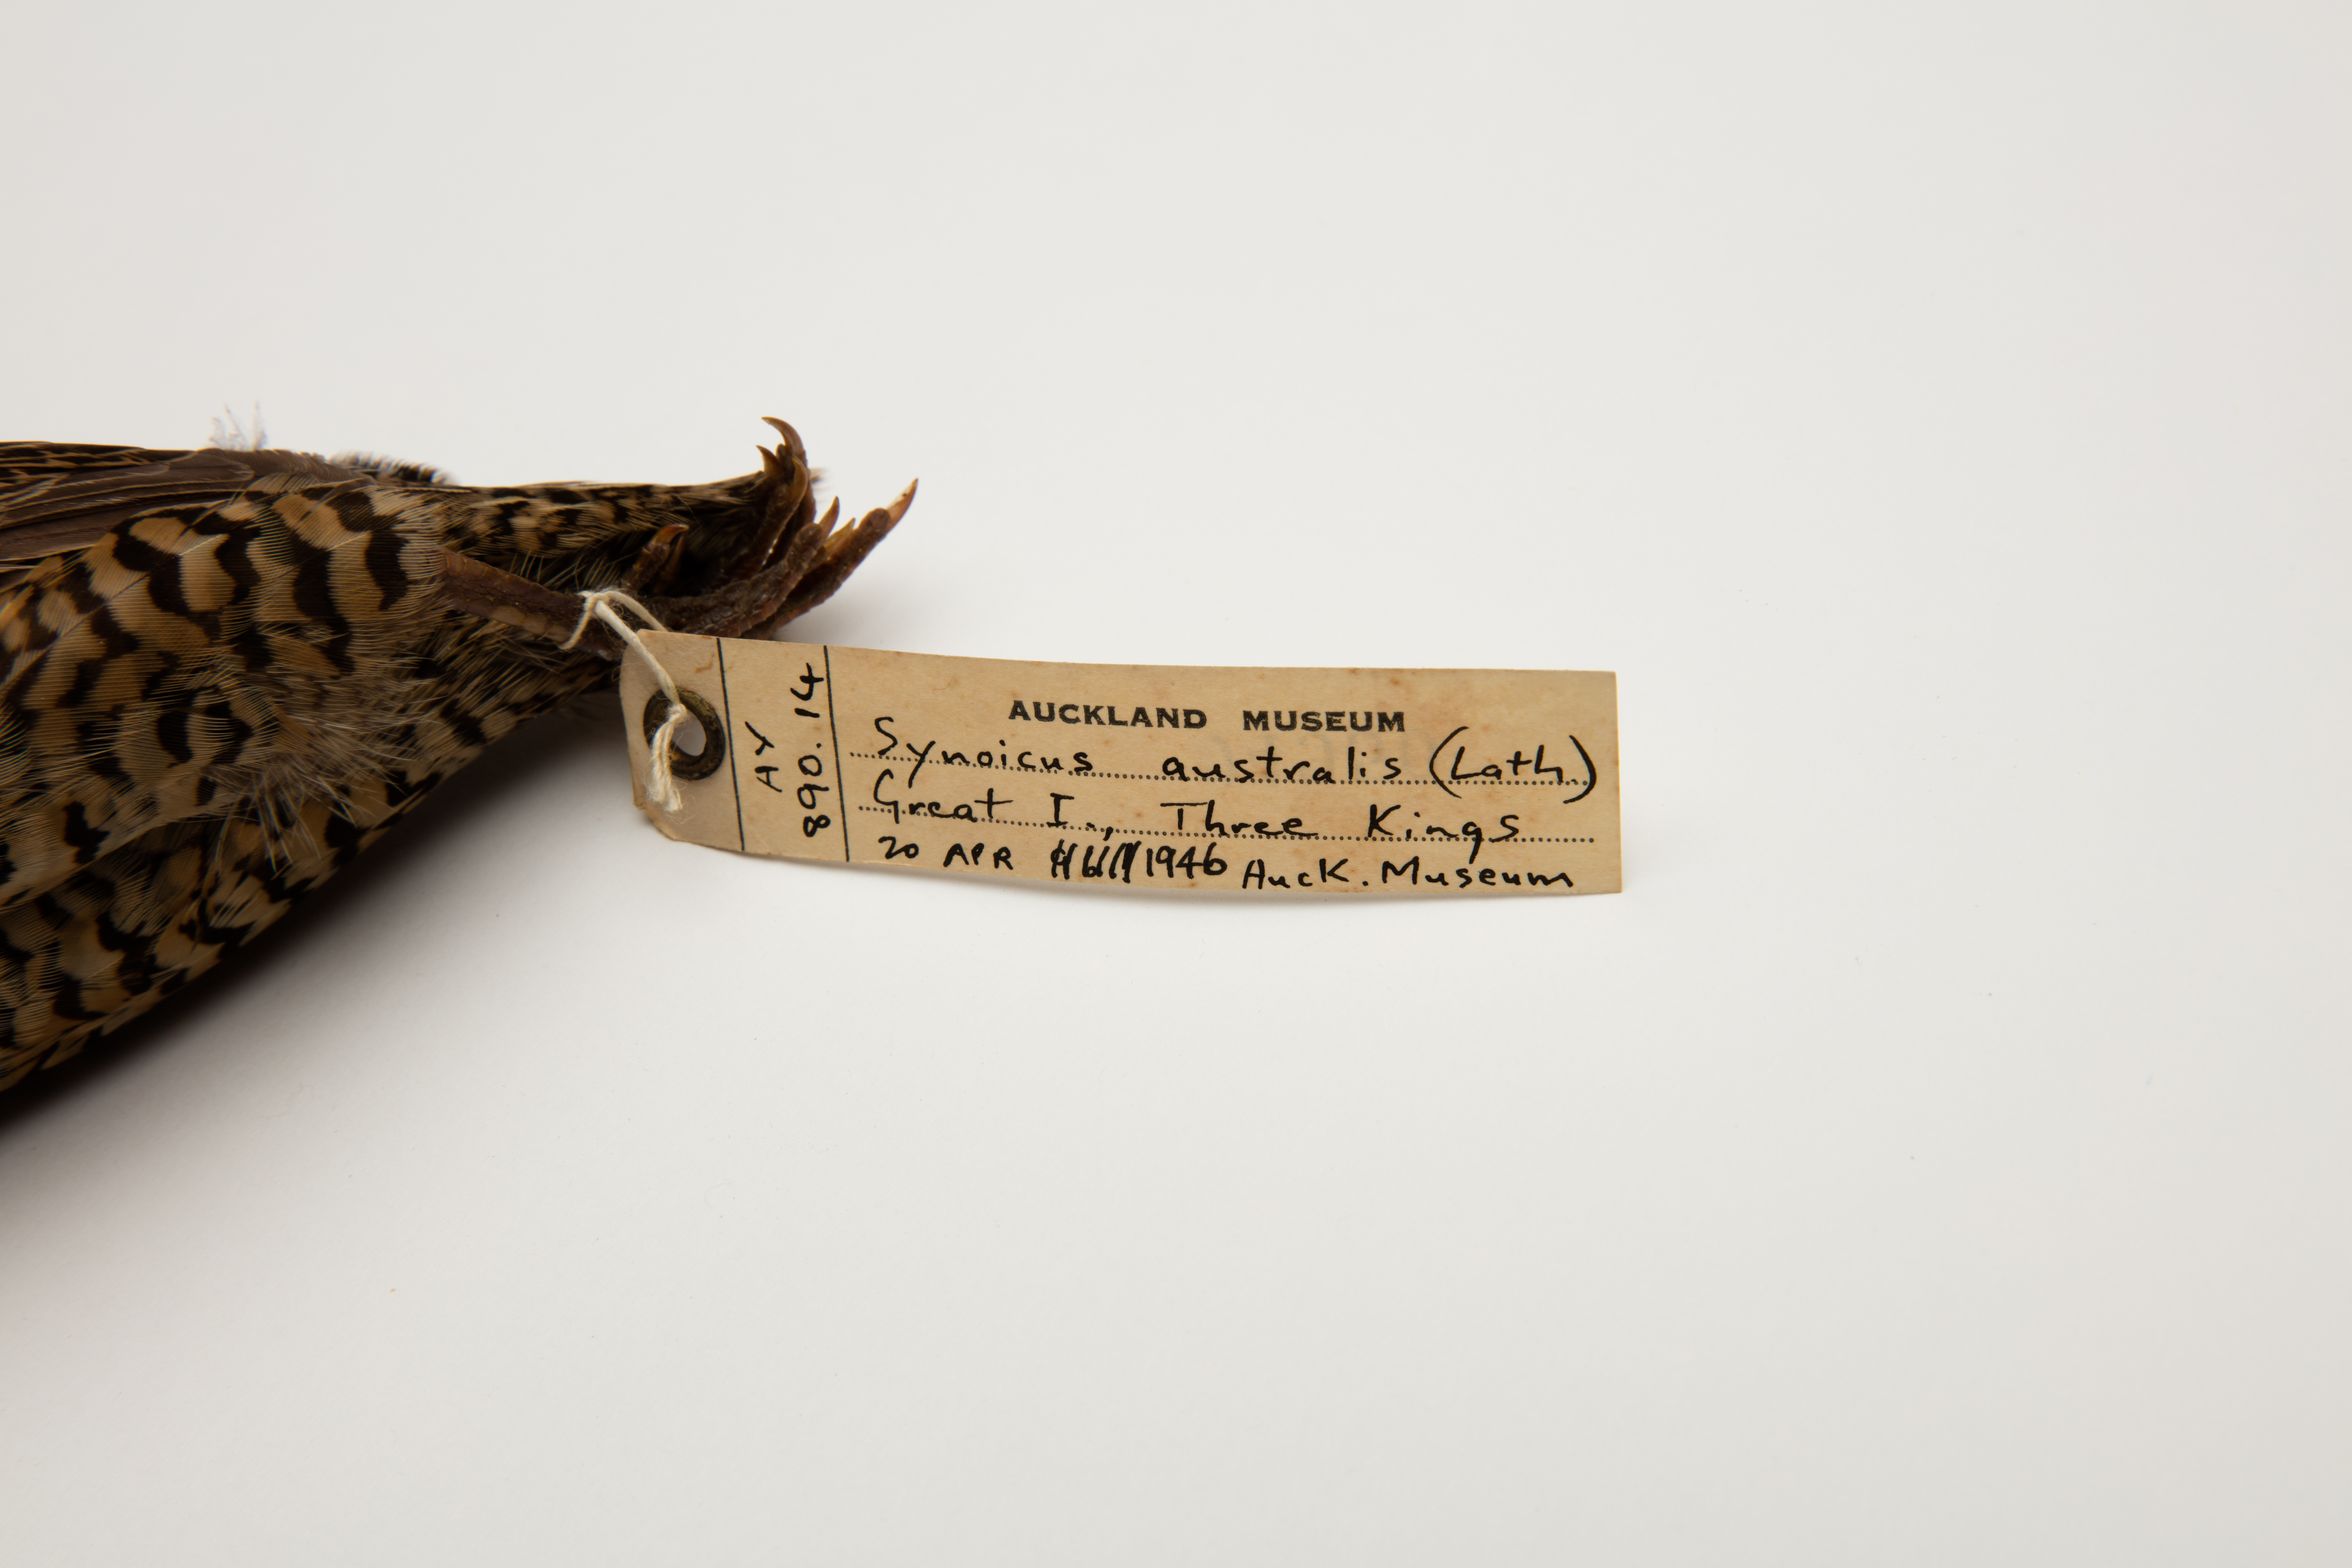 AV
890.14
AUCKLAND MUSEUM
Synoicus australis (Lath.)
Great I., Three Kings
20 APR 1946 Auck. Museum